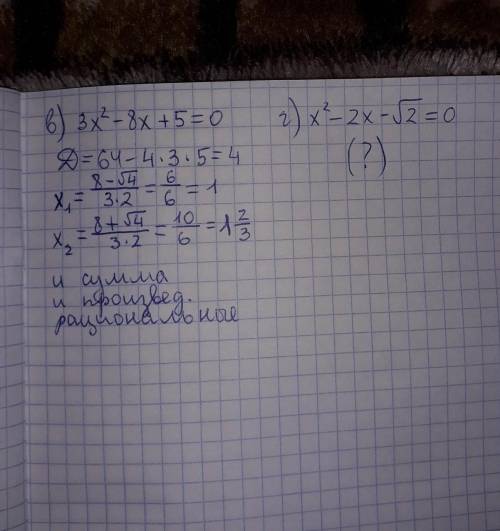 в) 3x² - 8x + 5 = 0
Д = 64 - 4 · 3 · 5 = 4
x₁ = (8 - √4)/(3 · 2) = 6/6 = 1
x₂ = (8 + √4)/(3 · 2) = 10/6 = 1 2/3
и сумма
и произвед.
рациональные
г) x² - 2x - √2 = 0
(?)